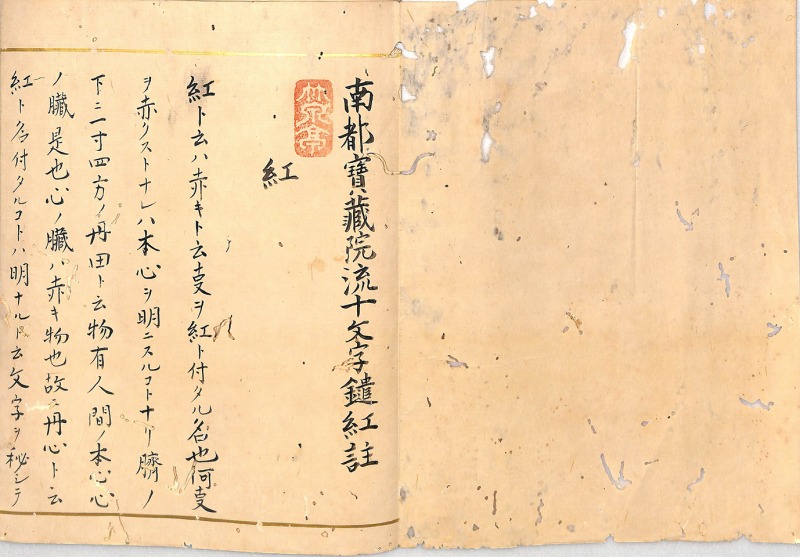 南都寶藏院流十文字鑓紅註
紅
紅ト云ハ赤キト云叓ヲ紅ト付タル名也何叓
ヲ赤クストナレハ本心ヲ明ニスルコトナリ臍ノ
下二寸四方ノ丹田ト云物有人間ノ本心心
ノ臓是也心ノ臓ハ赤キ物也故ニ丹心ト云
紅ト名付タルコトハ明ナルト云文字ヲ秘シテ